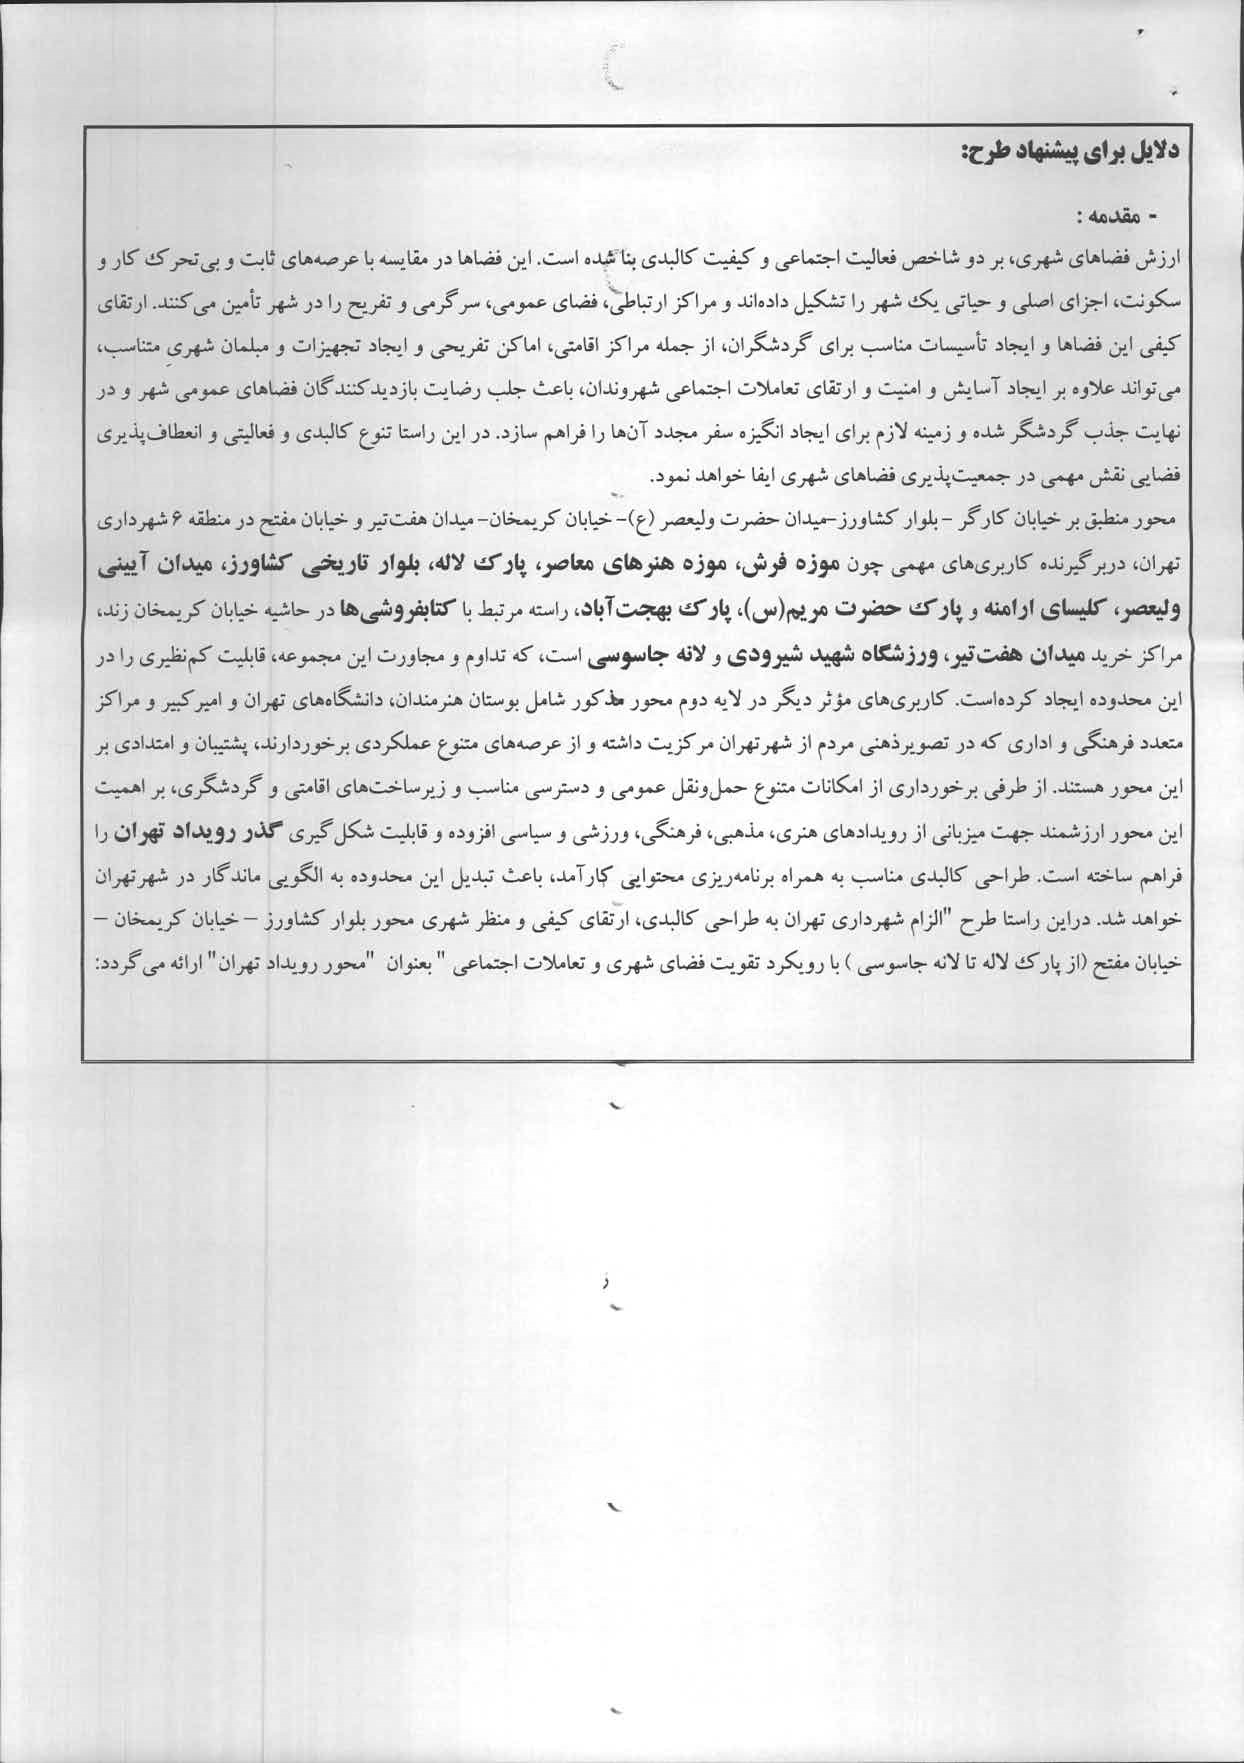 دلایل برای پیشنهاد طرح:
- مقدمه :
ارزش فضاهای شهری، بر دو شاخص فعالیت اجتماعی و کیفیت کالبدی بنا شده است. این فضاها در مقایسه با عرصه‌های ثابت و بی‌تحرک کار و
سکونت، اجزای اصلی و حیاتی یک شهر را تشکیل داده‌اند و مراکز ارتباطی، فضای عمومی، سرگرمی و تفریح را در شهر تأمین می‌کنند. ارتقای
کیفی این فضاها و ایجاد تأسیسات مناسب برای گردشگران، از جمله مراکز اقامتی، اماکن تفریحی و ایجاد تجهیزات و مبلمان شهریِ متناسب،
می‌تواند علاوه بر ایجاد آسایش و امنیت و ارتقای تعاملات اجتماعی شهروندان، باعث جلب رضایت بازدیدکنندگان فضاهای عمومی شهر و در
نهایت جذب گردشگر شده و زمینه لازم برای ایجاد انگیزه سفر مجدد آن‌ها را فراهم سازد. در این راستا تنوع کالبدی و فعالیتی و انعطاف‌پذیری
فضایی نقش مهمی در جمعیت‌پذیری فضاهای شهری ایفا خواهد نمود.
محور منطبق بر خیابان کارگر – بلوار کشاورز–میدان حضرت ولیعصر (ع)– خیابان کریمخان– میدان هفت‌تیر و خیابان مفتح در منطقه ۶ شهرداری
تهران، دربرگیرنده کاربری‌های مهمی چون موزه فرش، موزه هنرهای معاصر، پارک لاله، بلوار تاریخی کشاورز، میدان آیینی
ولیعصر، کلیسای ارامنه و پارک حضرت مریم(س)، پارک بهجت‌آباد، راسته مرتبط با کتابفروشی‌ها در حاشیه خیابان کریمخان زند،
مراکز خرید میدان هفت‌تیر، ورزشگاه شهید شیرودی و لانه جاسوسی است، که تداوم و مجاورت این مجموعه، قابلیت کم‌نظیری را در
این محدوده ایجاد کرده‌است. کاربری‌های مؤثر دیگر در لایه دوم محور مذکور شامل بوستان هنرمندان، دانشگاه‌های تهران و امیرکبیر و مراکز
متعدد فرهنگی و اداری که در تصویرذهنی مردم از شهرتهران مرکزیت داشته و از عرصه‌های متنوع عملکردی برخوردارند، پشتیبان و امتدادی بر
این محور هستند. از طرفی برخورداری از امکانات متنوع حمل‌ونقل عمومی و دسترسی مناسب و زیرساخت‌های اقامتی و گردشگری، بر اهمیت
این محور ارزشمند جهت میزبانی از رویدادهای هنری، مذهبی، فرهنگی، ورزشی و سیاسی افزوده و قابلیت شکل‌گیری گذر رویداد تهران را
فراهم ساخته است. طراحی کالبدی مناسب به همراه برنامه‌ریزی محتوایی کارآمد، باعث تبدیل این محدوده به الگویی ماندگار در شهرتهران
خواهد شد. دراین راستا طرح "الزام شهرداری تهران به طراحی کالبدی، ارتقای کیفی و منظر شهری محور بلوار کشاورز – خیابان کریمخان –
خیابان مفتح (از پارک لاله تا لانه جاسوسی ) با رویکرد تقویت فضای شهری و تعاملات اجتماعی " بعنوان "محور رویداد تهران" ارائه می‌گردد: